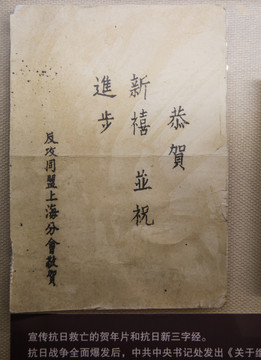 恭賀
新禧 並祝
進步
反攻同盟上海分會敬賀
宣传抗日救亡的贺年片和抗日新三字经。
抗日战争全面爆发后，中共中央书记处发出《关于